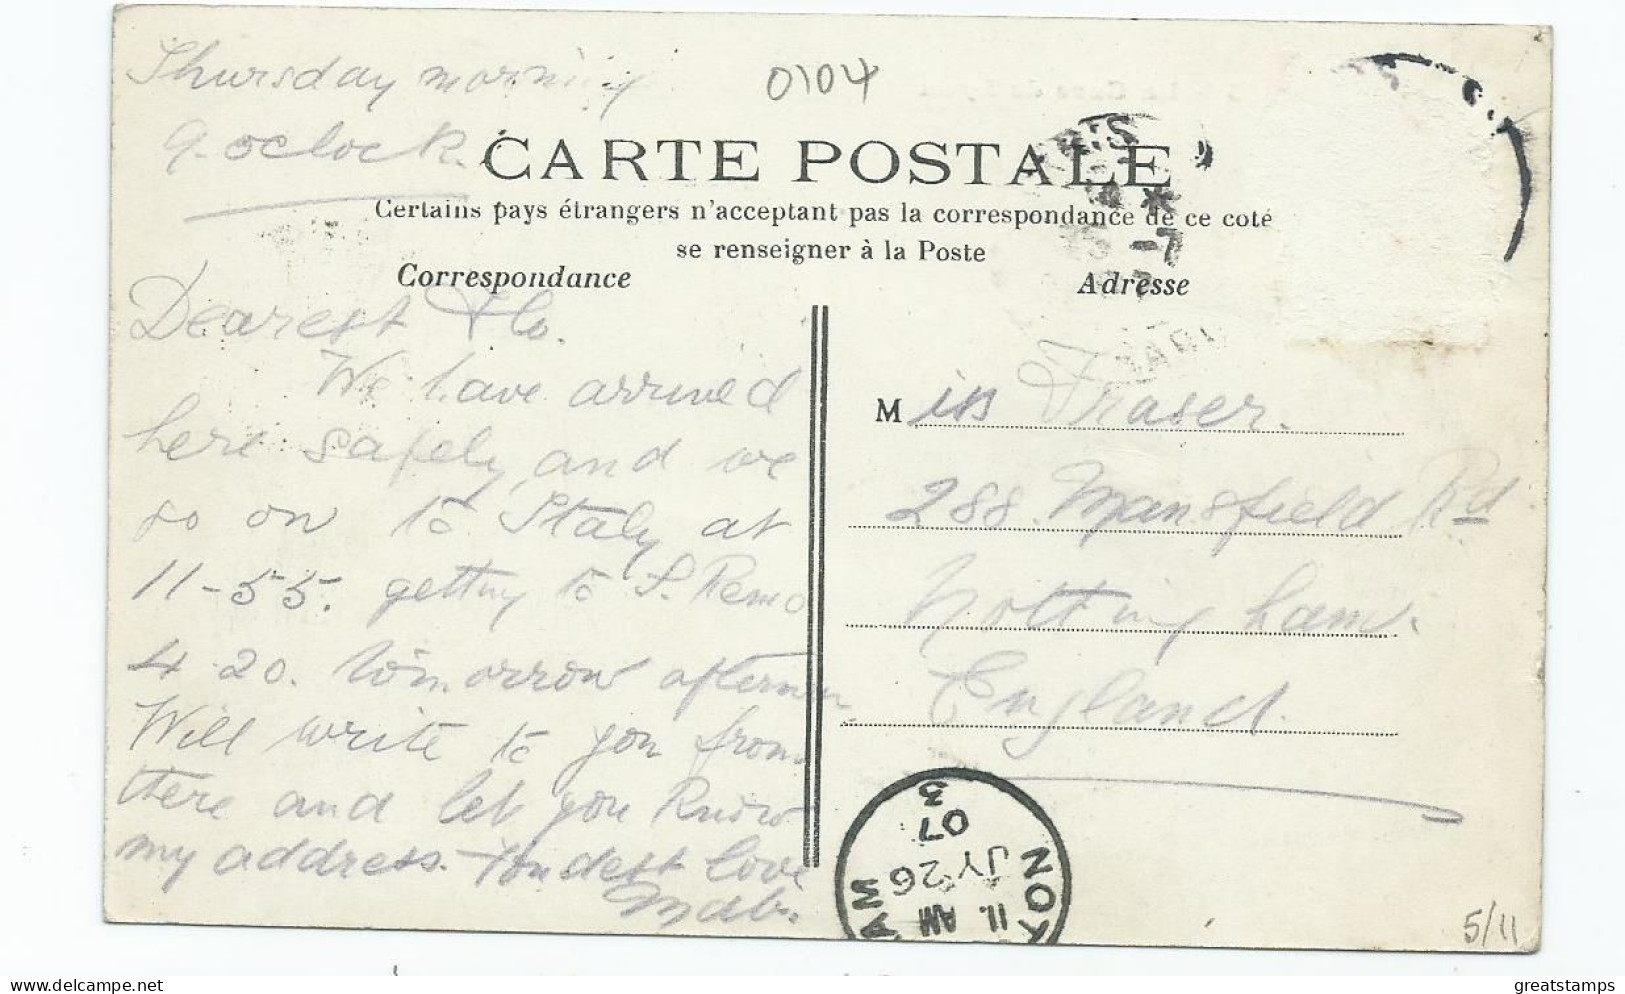 Thursday morning
9. oclock.
0104
CARTE POSTALE
Certains pays étrangers n'acceptant pas la correspondance de ce coté
se renseigner à la Poste
Correspondance
Adresse
Dearest Flo.
We have arrived
here safely and we
go on to Italy at
11-55. getting to S. Remo
4 20. tomorrow afternoon.
Will write to you from
there and let you know
my address. Fondest love
Mab.
PARIS
-7
Miss Fraser.
288. Mansfield Rd
Nottingham.
England.
NOTTINGHAM
11. AM
JY 26
07
3
5/11
delcampe.net
greatstamps